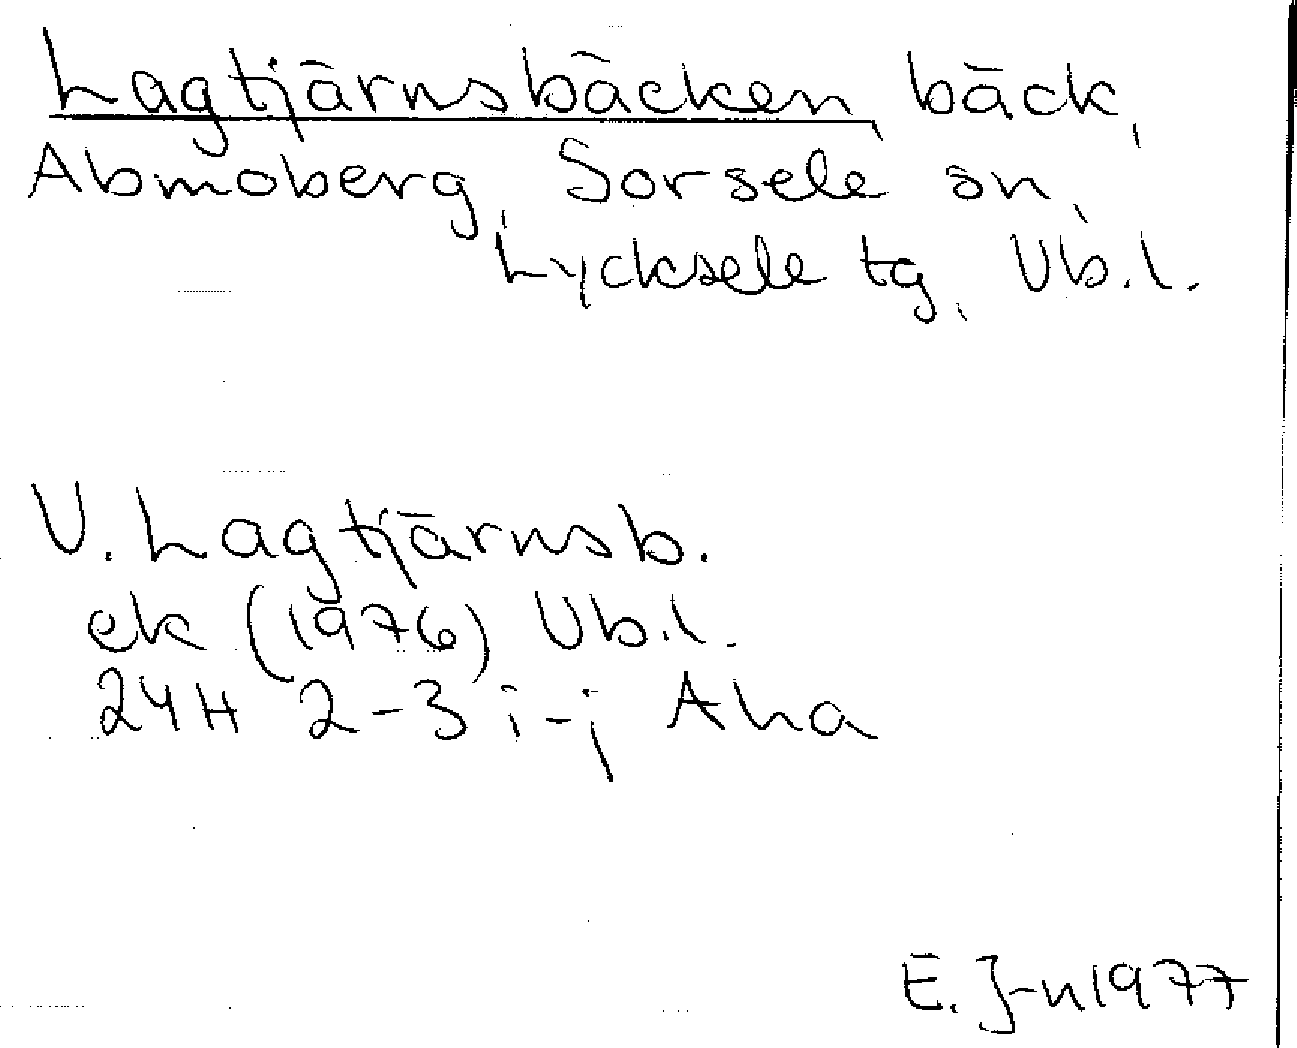 Lagtjärnsbäcken, bäck,
Abmoberg, Sorsele sn,
Lycksele tg, Vb.l.
V. Lagtjärnsb.
ek (1976) Vb.l.
24H 2-3 i-j Aha
E. J-n 1977